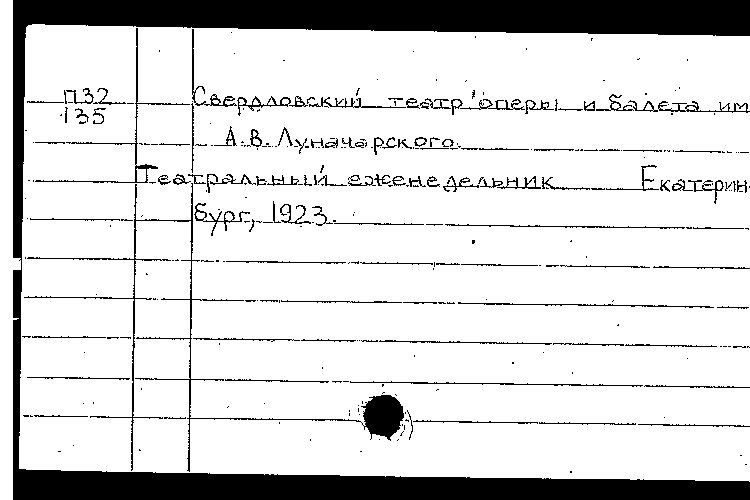 П32
135
Свердловский театр оперы и балета им
А.В. Луначарского.
Театральный еженедельник Екатерин-
бург, 1923.